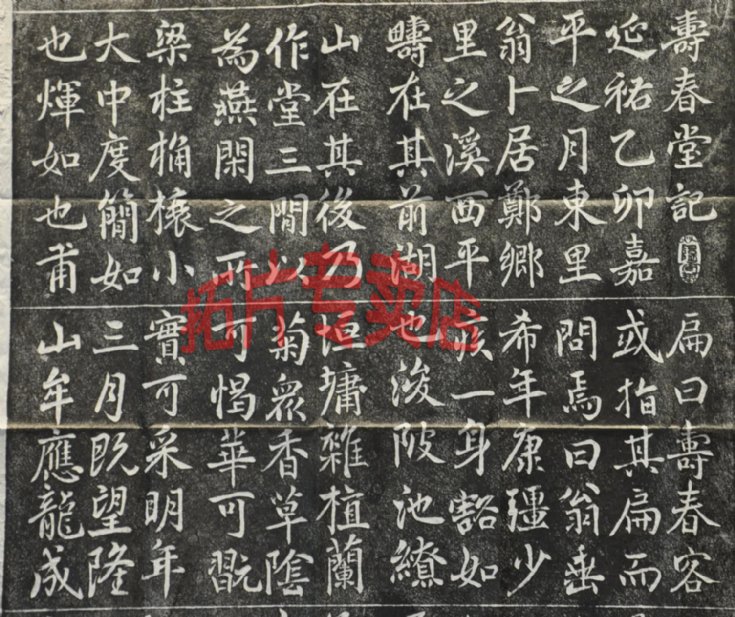 壽春堂記
延祐乙卯嘉
平之月東里
翁卜居鄭鄉
里之溪西平
疇在其前湖
山在其後乃
作堂三間以
為燕閑之所
梁柱桷榱小
大中度簡如
也煇如也甫
扁曰壽春客
或指其扁而
問焉曰翁垂
希年康彊少
疾一身豁如
也浚陂池繚
垣墉雜植蘭
菊眾香草陰
可愒華可翫
實可采明年
三月既望隆
山牟應龍成
拓片专卖店